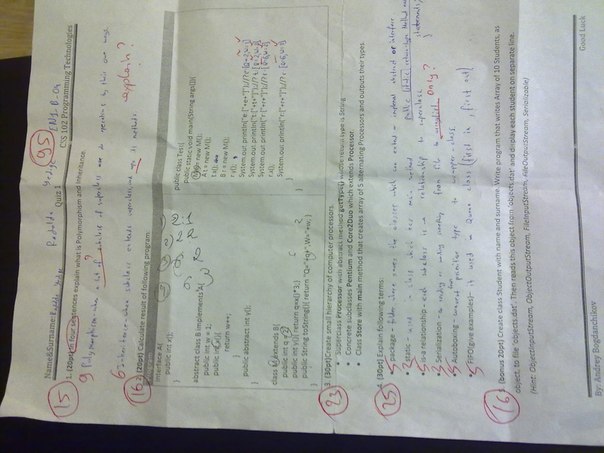 95
Name&Surname: ENJ-B-04
Quiz 1 CSS 102 Programming Technologies
15
1. (20pt) In four sentences explain what is Polymorphism and Inheritance.
9 Polymorphism - when a set of subclass of superclass use do operations by their own ways.
?
6 Inheritance - when subclass extends superclass, and use its methods. explain?
16
2. (20pt) Calculate result of following program:
Program
interface A{
public int x();
}
abstract class B implements A{
public int w = 1;
public int x(){
return w++;
}
public abstract int y();
}
class M extends B{
public int q = 2;
public int y(){ return q=x()*3;}
public String toString(){ return "Q="+q+",W="+w; }
}
public class Test{
public static void main(String args[]){
M e = new M();
A t = new M();
B r = new M();
r.y();
System.out.println("e:["+e+"]");//? e:[Q=2,W=1]
System.out.println("t:["+t+"]");//? t:
System.out.println("r:["+r+"]");//? r:
r.x();
System.out.println("r:["+r+"]");//? r:
}
}
23
3. (30pt)Create small hierarchy of computer processors.
• Superclass Processor with abstract method getType() whose return type is String
• Concrete subclasses Pentium and Core2Duo which extends Processor.
• Class Store with main method that creates array of 5 alternating Processors and outputs their types.
25
4. (30pt) Explain following terms:
• 5 package - folder where saves the classes which can extend or implement abstract or interface
• 2 static - used in class which has main method public (static) return-type Method name
statements;
}
• 5 is-a relationship - each subclass is a relationship to superclass
• 5 Serialization - Only?
• 5 Autoboxing - convert from primitive type to wrapper-class.
• 5 FIFO(give examples) - it used in Queue class (first in, first out)
16
5. (bonus 20pt) Create class Student with name and surname. Write program that writes Array of 10 Students, as
object, to file 'objects.dat'. Then reads this object from 'objects.dat' and display each student on separate line.
(Hint: ObjectInputStream, ObjectOutputStream, FileInputStream, FileOutputStream, Serializable)
Good Luck
By: Andrey Bogdanchikov